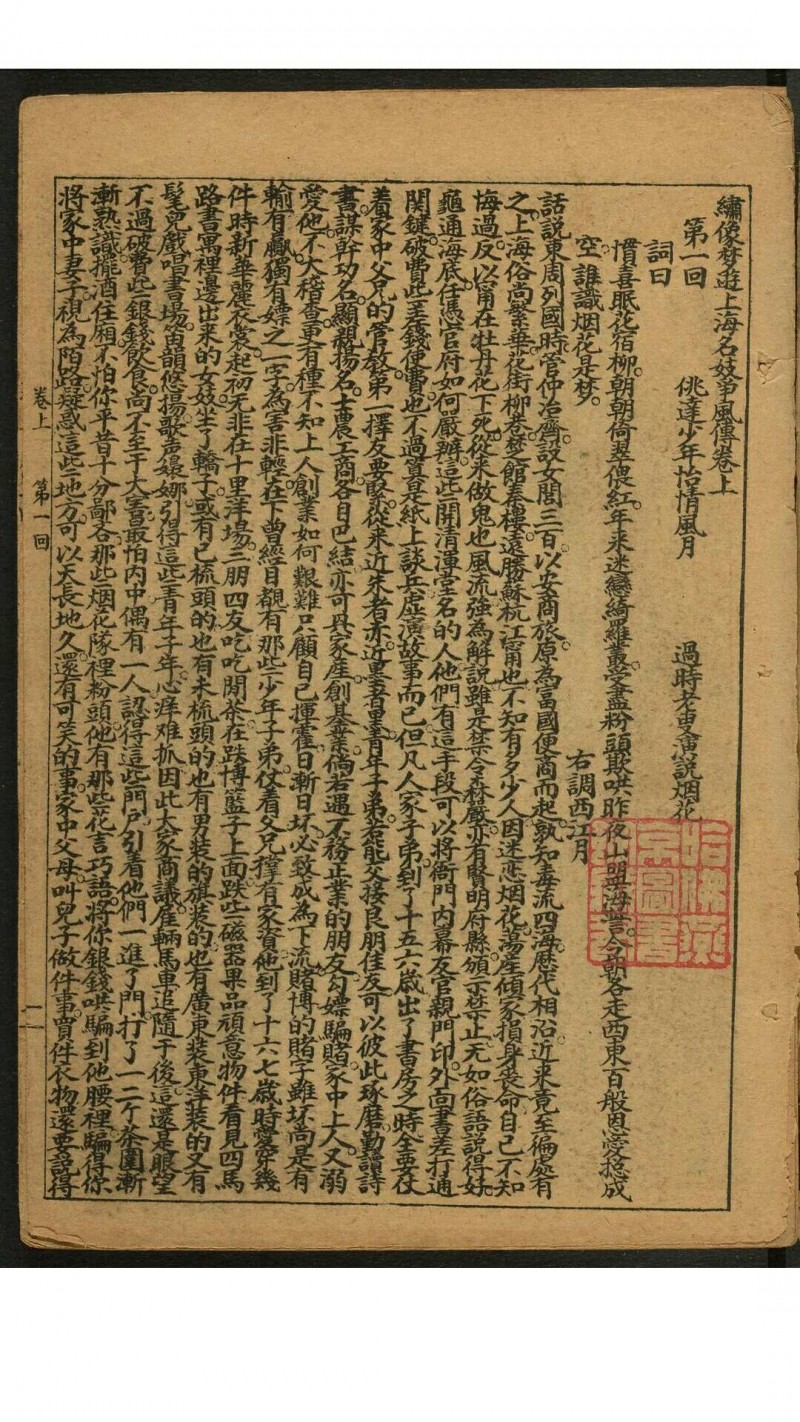 繡像梦遊上海名妓爭風傳卷上
第一回　佻達少年怡情風月　過時老吏演説烟花
詞曰
慣喜眠花宿柳朝朝倚翠偎紅年来迷戀綺羅叢受盡粉頭欺哄昨夜山盟海誓今朝各走西東百般恩愛捴成
空誰識烟花是梦　右調西江月
話説東周列國時管仲治齊設女閭三百以安商旅原為富國便商而起孰知毒流四海歷代相沿近来竟至徧處有
之上海俗尚繁華花街柳巷楚館秦樓遠勝蘇杭江甯也不知有多少人因迷恋烟花蕩産傾家損身丧命自己不知
悔過反以甯在牡丹花下死從来做鬼也風流強為解説雖是禁令森嚴亦有賢明府縣頒示禁止无如俗語説得好
龜通海底任憑官府如何嚴辦這些開清渾堂名的人他們有這手段可以將衙門内幕友官親門印外面書差打通
関鍵破費些銀錢使費也不過算是紙上談兵虚演故事而已但凡人家子弟到了十五六歳出了書房之時全要仗
着家中父兄的管敎第一擇友要𦂳從来近朱者赤近墨者黑青年子弟若能父接良朋佳友可以彼此琢磨勤讀詩
書謀幹功名顯親揚名士農工商各自巴結亦可興家産創基業倘若遇了不務正業的朋友勾嫖騙賭家中上人又溺
愛他不大稽查更有種不知上人創業如何艱難只顧自己揮霍日漸日坏必致成為下流賭博的賭字雖坏尚是有
輸有贏獨有嫖之一字為害非輕在下曾經目覩有那些少年子弟仗着父兄撑有家資他到了十六七歳時愛穿幾
件時新華麗衣裳起初无非在十里洋場三朋四友吃吃閒茶在跌博籃子上面跌些磁器果品頑意物件看見四馬
路書寓裡邊出来的女妓坐了轎子或有已梳頭的也有未梳頭的也有男装的旗装的也有廣東装東洋装的又有
髦兒戲唱書場笛韻悠揚歌声嬝娜引得這些青年子年心痒难抓因此大家商議雇輛馬車追隨于後這還是眼望
不過破費些銀錢飲食尚不至于大害最怕内中偶有一人認得這些門戸引着他們一進了門打了一二个茶圍漸
漸熟識擺酒住廂不怕你平昔十分鄙吝那些烟花隊裡粉頭他有那些花言巧語將你銀錢哄騙到他腰裡騙得你
將家中妻子視為陌路疑惑這些地方可以天長地久還有可笑的事家中父母叫兒子做件事買件衣物還要説得
卷上　第一回　一